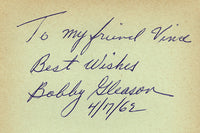 To my friend Vince
Best Wishes
Bobby Gleason
4/17/62